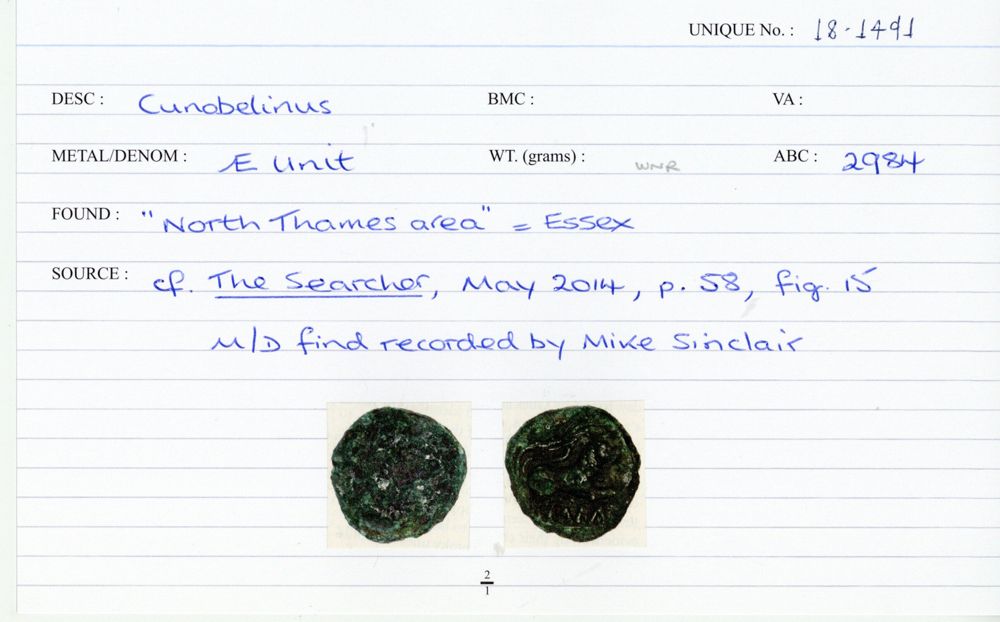 UNIQUE No. : 18-1491
DESC : Cunobelinus BMC : VA :
METAL/DENOM : Æ Unit WT. (grams) : WNR ABC : 2984
FOUND : "North Thames area" = Essex
SOURCE : cf. The Searcher, May 2014, p. 58, fig. 15
M/D find recorded by Mike Sinclair
2
1